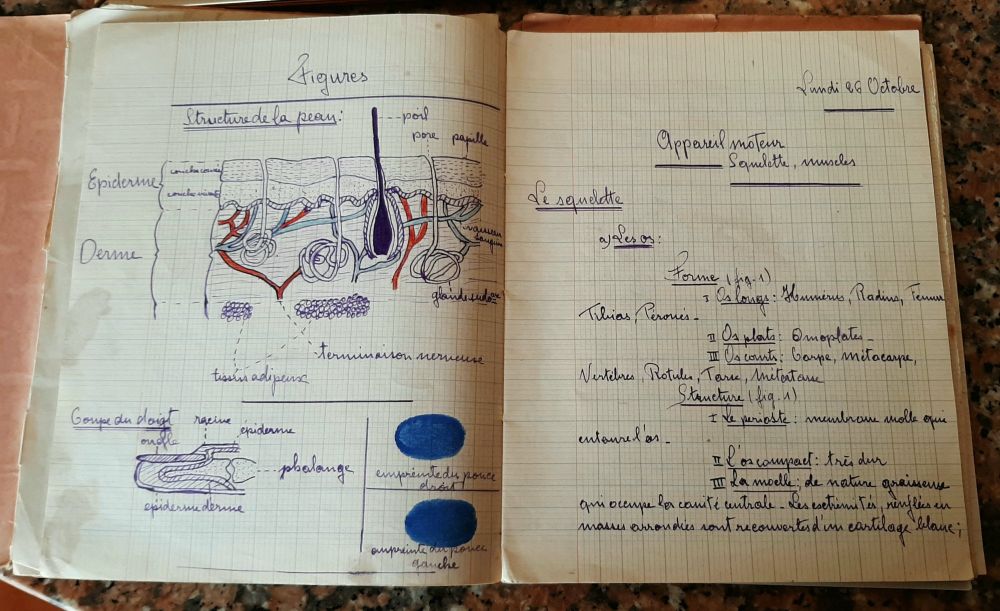 Figures
Structure de la peau :
poil
pore papille
Epiderme
couche cornée
couche vivante
Derme
vaisseau
sanguin
glande sudori
terminaison nerveuse
tissus adipeux
Coupe du doigt
racine
ongle
épiderme
phalange
epiderme derme
empreinte du pouce
droit
empreinte du pouce
gauche
Lundi 26 Octobre
Appareil moteur
Squelette, muscles
Le squelette
a) Les os :
Forme (fig. 1)
I Os longs : Humérus, Radius, Fémur
Tibias, Péronés -
II Os plats : Omoplates -
III Os courts : Carpe, métacarpe,
Vertèbres, Rotules, Tarse, métatarse
Structure (fig. 1)
I Le perioste : membrane molle qui
entoure l'os -
II L'os compact : très dur
III La moelle ; de nature graisseuse
qui occupe la cavité centrale - Les extrémités, renflées en
masses arrondies sont recouvertes d'un cartilage blanc ;